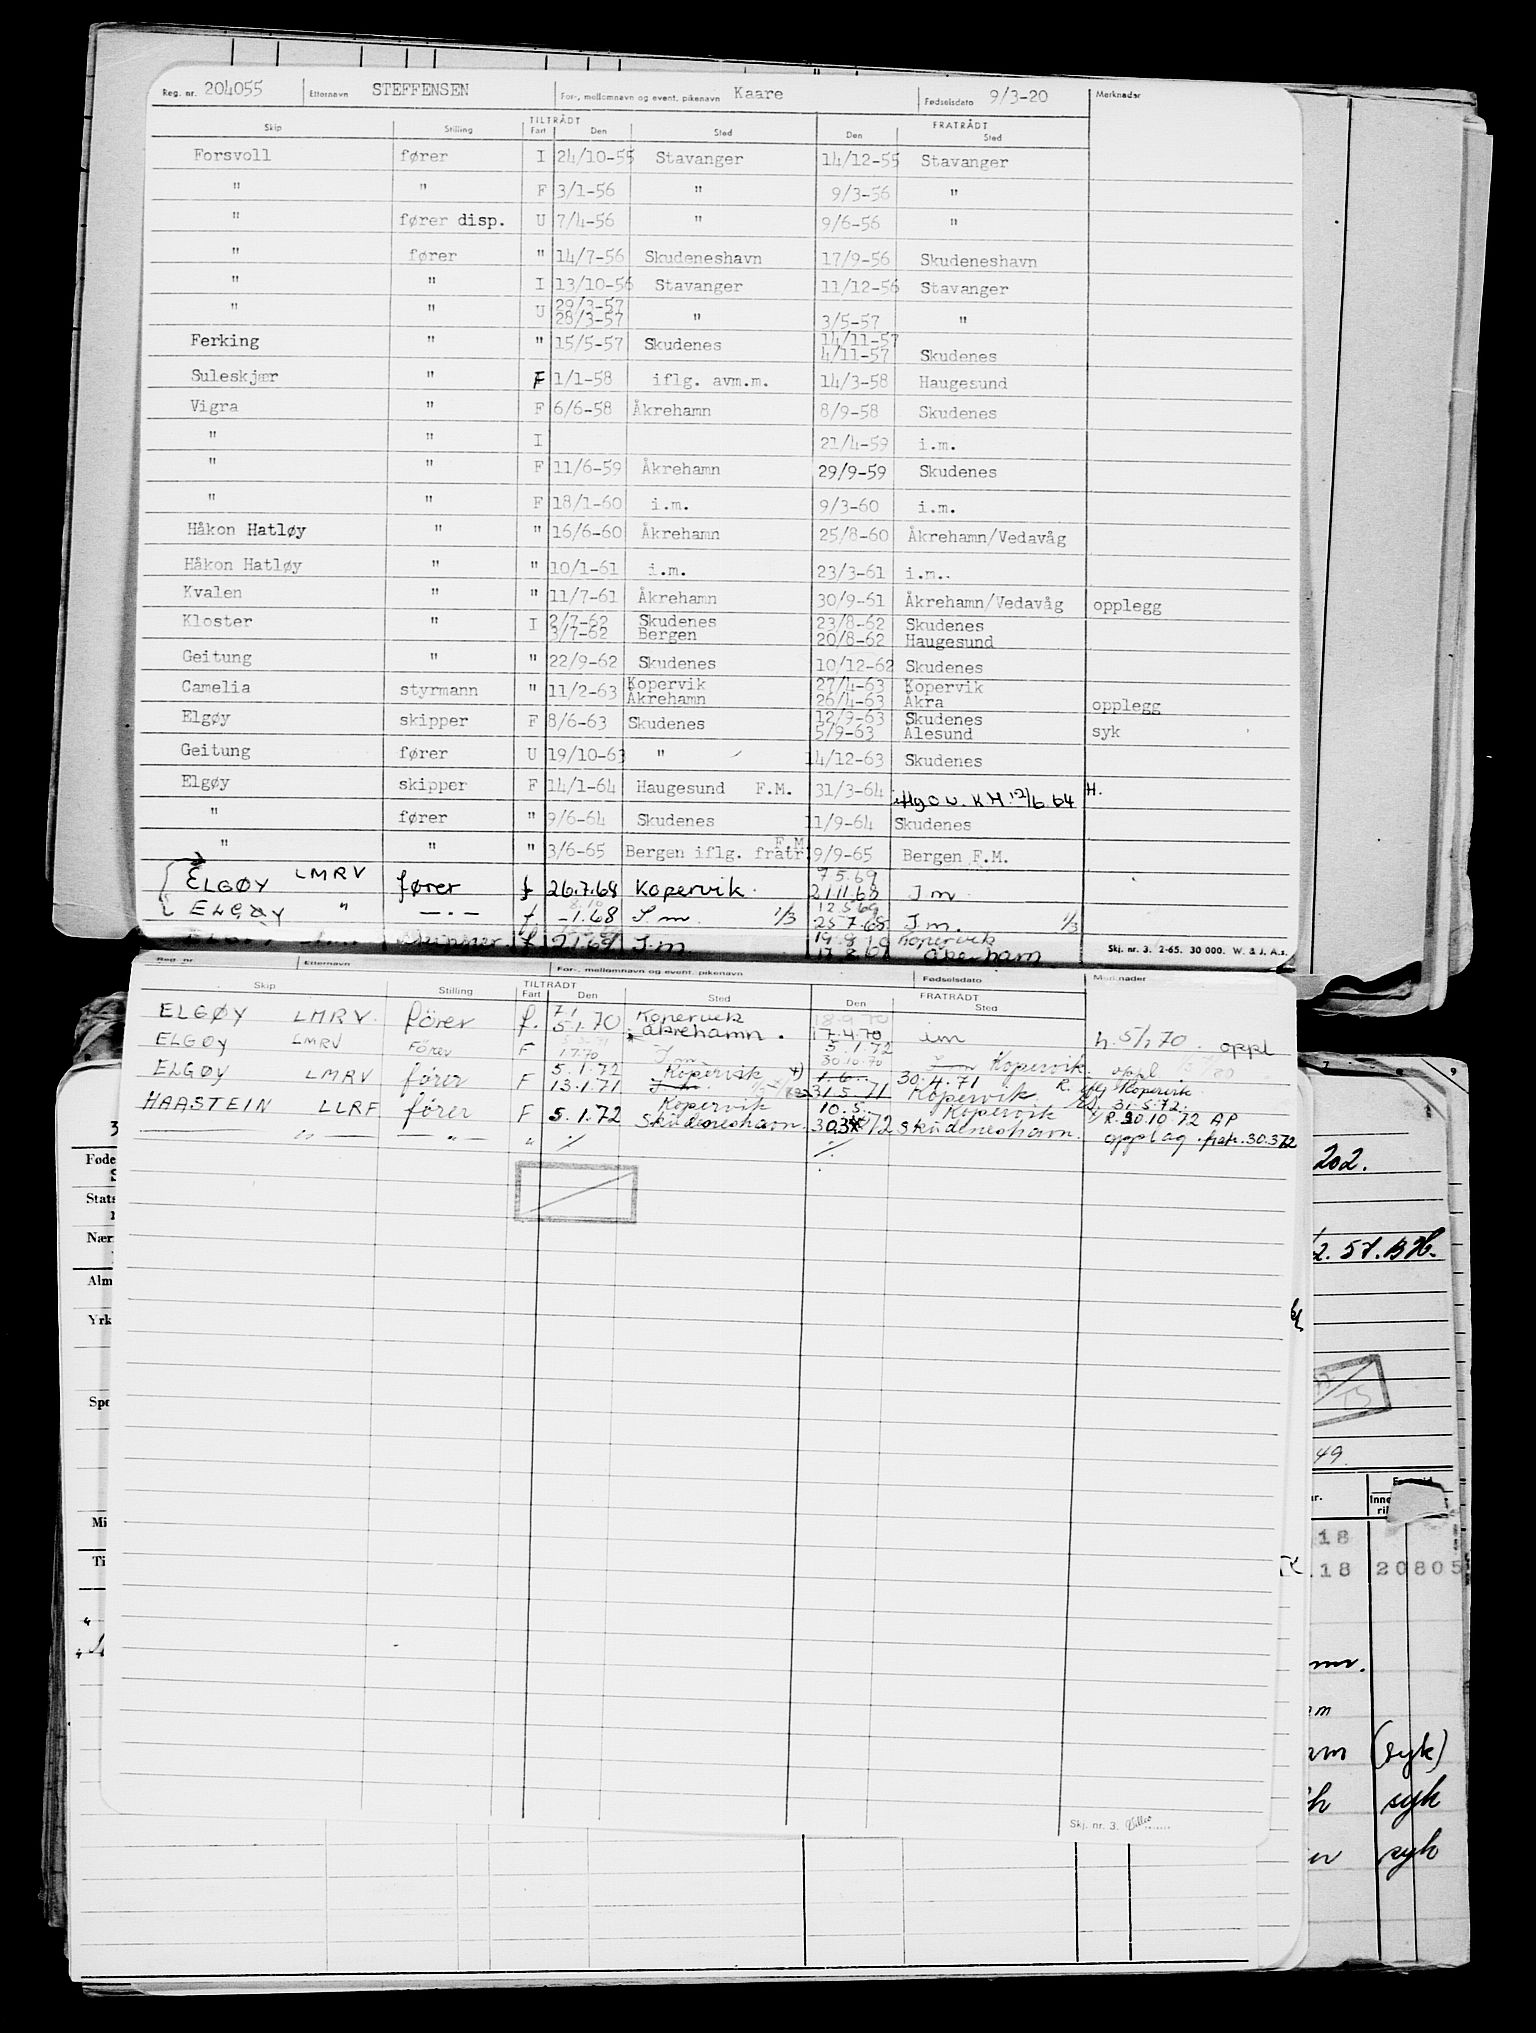 Reg. nr. 204055 Etternavn STEFFENSEN For-, mellomnavn og event. pikenavn Kaare Fødselsdato 9/3-20 Merknader
TILTRÅDT FRATRÅDT
Skip Stilling Fart Den Sted Den Sted
Forsvoll fører I 24/10-55 Stavanger 14/12-55 Stavanger
" " F 3/1-56 " 9/3-56 "
" fører disp. U 7/4-56 " 9/6-56 "
" fører " 14/7-56 Skudeneshavn 17/9-56 Skudeneshavn
" " I 13/10-56 Stavanger 11/12-56 Stavanger
" " U 29/3-57
28/3-57 " 3/5-57 "
Ferking " " 15/5-57 Skudenes 14/11-57
4/11-57 Skudenes
Suleskjær " F 1/1-58 iflg. avm.m. 14/3-58 Haugesund
Vigra " F 6/6-58 Åkrehamn 8/9-58 Skudenes
" " I 21/4-59 i.m.
" " F 11/6-59 Åkrehamn 29/9-59 Skudenes
" " F 18/1-60 i.m. 9/3-60 i.m.
Håkon Hatløy " " 16/6-60 Åkrehamn 25/8-60 Åkrehamn/Vedavåg
Håkon Hatløy " " 10/1-61 i.m. 23/3-61 i.m..
Kvalen " " 11/7-61 Åkrehamn 30/9-61 Åkrehamn/Vedavåg opplegg
Kloster " I 2/7-62 Skudenes 23/8-62 Skudenes
3/7-62 Bergen 20/8-62 Haugesund
Geitung " " 22/9-62 Skudenes 10/12-62 Skudenes
Camelia styrmann " 11/2-63 Kopervik 27/4-63 Kopervik
Åkrehamn 26/4-63 Åkra opplegg
Elgøy skipper F 8/6-63 Skudenes 12/9-63 Skudenes
5/9-63 Ålesund syk
Geitung fører U 19/10-63 " 14/12-63 Skudenes
Elgøy skipper F 14/1-64 Haugesund F.M. 31/3-64 K H. 12/6 64 H.
" fører " 9/6-64 Skudenes 11/9-64 Skudenes
" " " 3/6-65 Bergen iflg. fratr. F.M 9/9-65 Bergen F.M.
9.5.69
ELGØY LMRV fører f 26.7.68 Kopervik. 21.11.68 I m
12.5.69
ELGØY " — . — f -1.68 I. m. 1/3 25.7.68 I m. 1/3
skipper f 2.1.69 I. m 19.8 Kopervik
Skj. nr. 3. 2-65. 30 000. W. & J. A.s.
Reg. nr. Etternavn For-, mellomnavn og event. pikenavn Fødselsdato Merknader
TILTRÅDT FRATRÅDT
Skip Stilling Fart Den Sted Den Sted
7.1 Kopervik 18.9.70
ELGØY LMRV. fører f. 5.1.70 åkrehamn. 17.4.70 im h. 5/1 70. oppl
5.1.72
ELGØY LMRV Fører F 1.7.70 I m 30.10.70 I m Kopervik oppl
5.1.72 Kopervik 1.6. 30.4.71
ELGØY LMRV fører F 13.1.71 31.5.71 Kopervik. R. Kopervik
Kopervik 10.5. Kopervik 31.5.72.
HAASTEIN LLRF fører F 5.1.72 Skudeneshavn. 30.3.72 Skudeneshavn. R. 30.10.72 AP
— " — — " — " ./. ./. opplag. fratr. 30.3.72
Skj. nr. 3.
202.
2. 57.
49.
Føde
Stats
Nær
Alm
Yrk
Spr
Mi
Ti
Inne
ri
18
.18 20805
(syk)
syk
syk